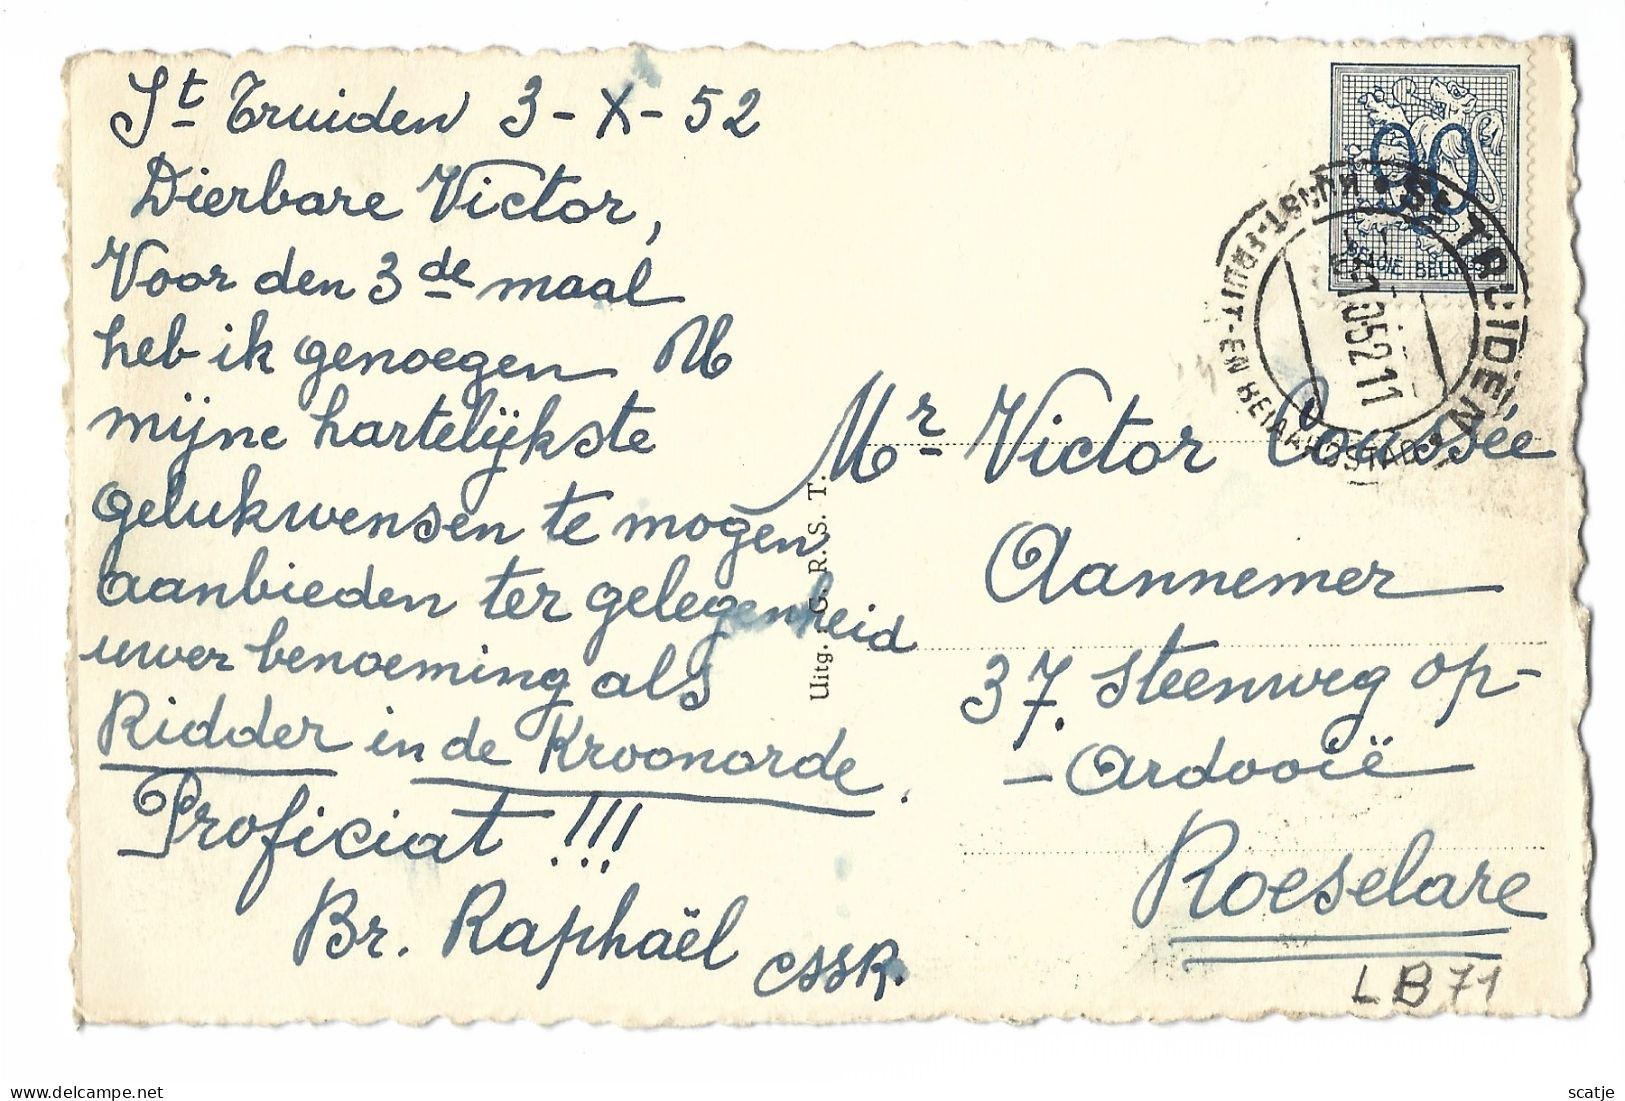 St Truiden 3-X-52
Dierbare Victor,
Voor den 3de maal
heb ik genoegen U
mijne hartelijkste
gelukwensen te mogen
aanbieden ter gelegenheid
uwer benoeming als
Ridder in de Kroonorde.
Proficiat !!!
Br. Raphaël
CSSR.
Uitg. G. R. S. T.
90
BELGIE BELGIQUE
ST TRUIDEN
KUNST-FRUIT-EN BEIAARDSTAD
-3-10-52 11
Mr Victor Coussée
Aannemer
37. Steenweg op-
- Ardooië
Roeselare
LB71
scatje